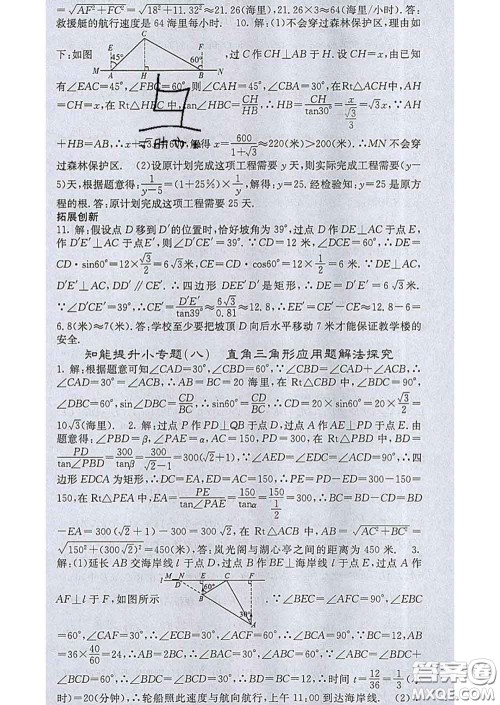 =√AF²+FC²=√18²+11.32²≈21.26(海里),21.26×3≈64(海里/小时).答:
救援艇的航行速度是64海里每小时. 10. 解:(1)不会穿过森林保护区,理由如
下:如图 C E F 45° 60° M A H B N ,过C作CH⊥AB于H.设CH=x,由已知
有∠EAC=45°,∠FBC=60°,则∠CAH=45°,∠CBA=30°.在Rt△ACH中,AH
=CH=x,在Rt△HBC中,tan∠HBC=CH/HB,∴HB=CH/tan30°=x/(√3/3)=√3x,∵AH
+HB=AB,∴x+√3x=600,解得x=600/(1+√3)≈220(米)>200(米).∴MN不会穿
过森林保护区. (2)设原计划完成这项工程需要y天,则实际完成工程需要(y−
5)天,根据题意得:1/(y−5)=(1+25%)×1/y,解得:y=25.经检验知:y=25是原方
程的根.答:原计划完成这项工程需要25天.
拓展创新
11. 解:假设点D移到D′的位置时,恰好坡角为39°,过点D作DE⊥AC于点E,
作D′E′⊥AC于点E′,则∠D′CE′=39°.∵CD=12米,∠DCE=60°,∴DE=
CD·sin60°=12×√3/2=6√3米,CE=CD·cos60°=12×1/2=6米.∵DE⊥AC,
D′E′⊥AC,DD′∥CE′.∴四边形DEE′D′是矩形,∴DE=D′E′=6√3米.
∵∠D′CE′=39°,∴CE′=D′E′/tan39°≈6√3/0.81≈12.8,∴EE′=CE′−CE≈12.8−6=
6.8(米)≈7(米).答:学校至少要把坡顶D向后水平移动7米才能保证教学楼的
安全.
知能提升小专题(八) 直角三角形应用题解法探究
1. 解:根据题意可知∠CAD=30°,∠CBD=60°,∵∠CBD=∠CAD+∠ACB,∴
∠CAD=30°=∠ACB,∴AB=BC=20海里,在Rt△CBD中,∠BDC=90°,
∠DBC=60°,sin∠DBC=CD/BC,∴sin60°=CD/BC,∴CD=20×sin60°=20×√3/2=
10√3(海里). 2. 解:过点P作PD⊥QB于点D,过点A作AE⊥PD于点E.由
题意得:∠PBD=β,∠PAE=α,AC=150,PD=300,在Rt△PBD中,BD=
PD/tan∠PBD=300/tanβ=300/(√2−1)=300(√2+1),∵∠AED=∠EDC=∠ACD=90°,∴四
边形EDCA为矩形,∴DC=EA,ED=AC=150,∴PE=PD−ED=300−150=
150,在Rt△PEA中,EA=PE/tan∠PAE=150/tanα=150/(1/2)=300,∴BC=BD−CD=BD
−EA=300(√2+1)−300=300√2,在Rt△ACB中,AB=√AC²+BC²=
√150²+(300√2)²=450(米),答:岚光阁与湖心亭之间的距离为450米. 3.
解:(1)延长AB交海岸线l于点D,过点B作BE⊥海岸线l于点E,过点A作
AF⊥l于F,如图所示 M N E C F 60° B 30° A .∵∠BEC=∠AFC=90°,∠EBC
=60°,∠CAF=30°,∴∠ECB=30°,∠ACF=60°,∴∠BCA=90°,∵BC=12,AB
=36×40/60=24,∴AB=2BC,∴∠BAC=30°,∠ABC=60°,∵∠ABC=∠BDC+
∠BCD=60°,∴∠BDC=∠BCD=30°,∴BD=BC=12,∴时间t=12/36=1/3(小
时)=20(分钟),∴轮船照此速度与航向航行,上午11:00到达海岸线. (2)∵